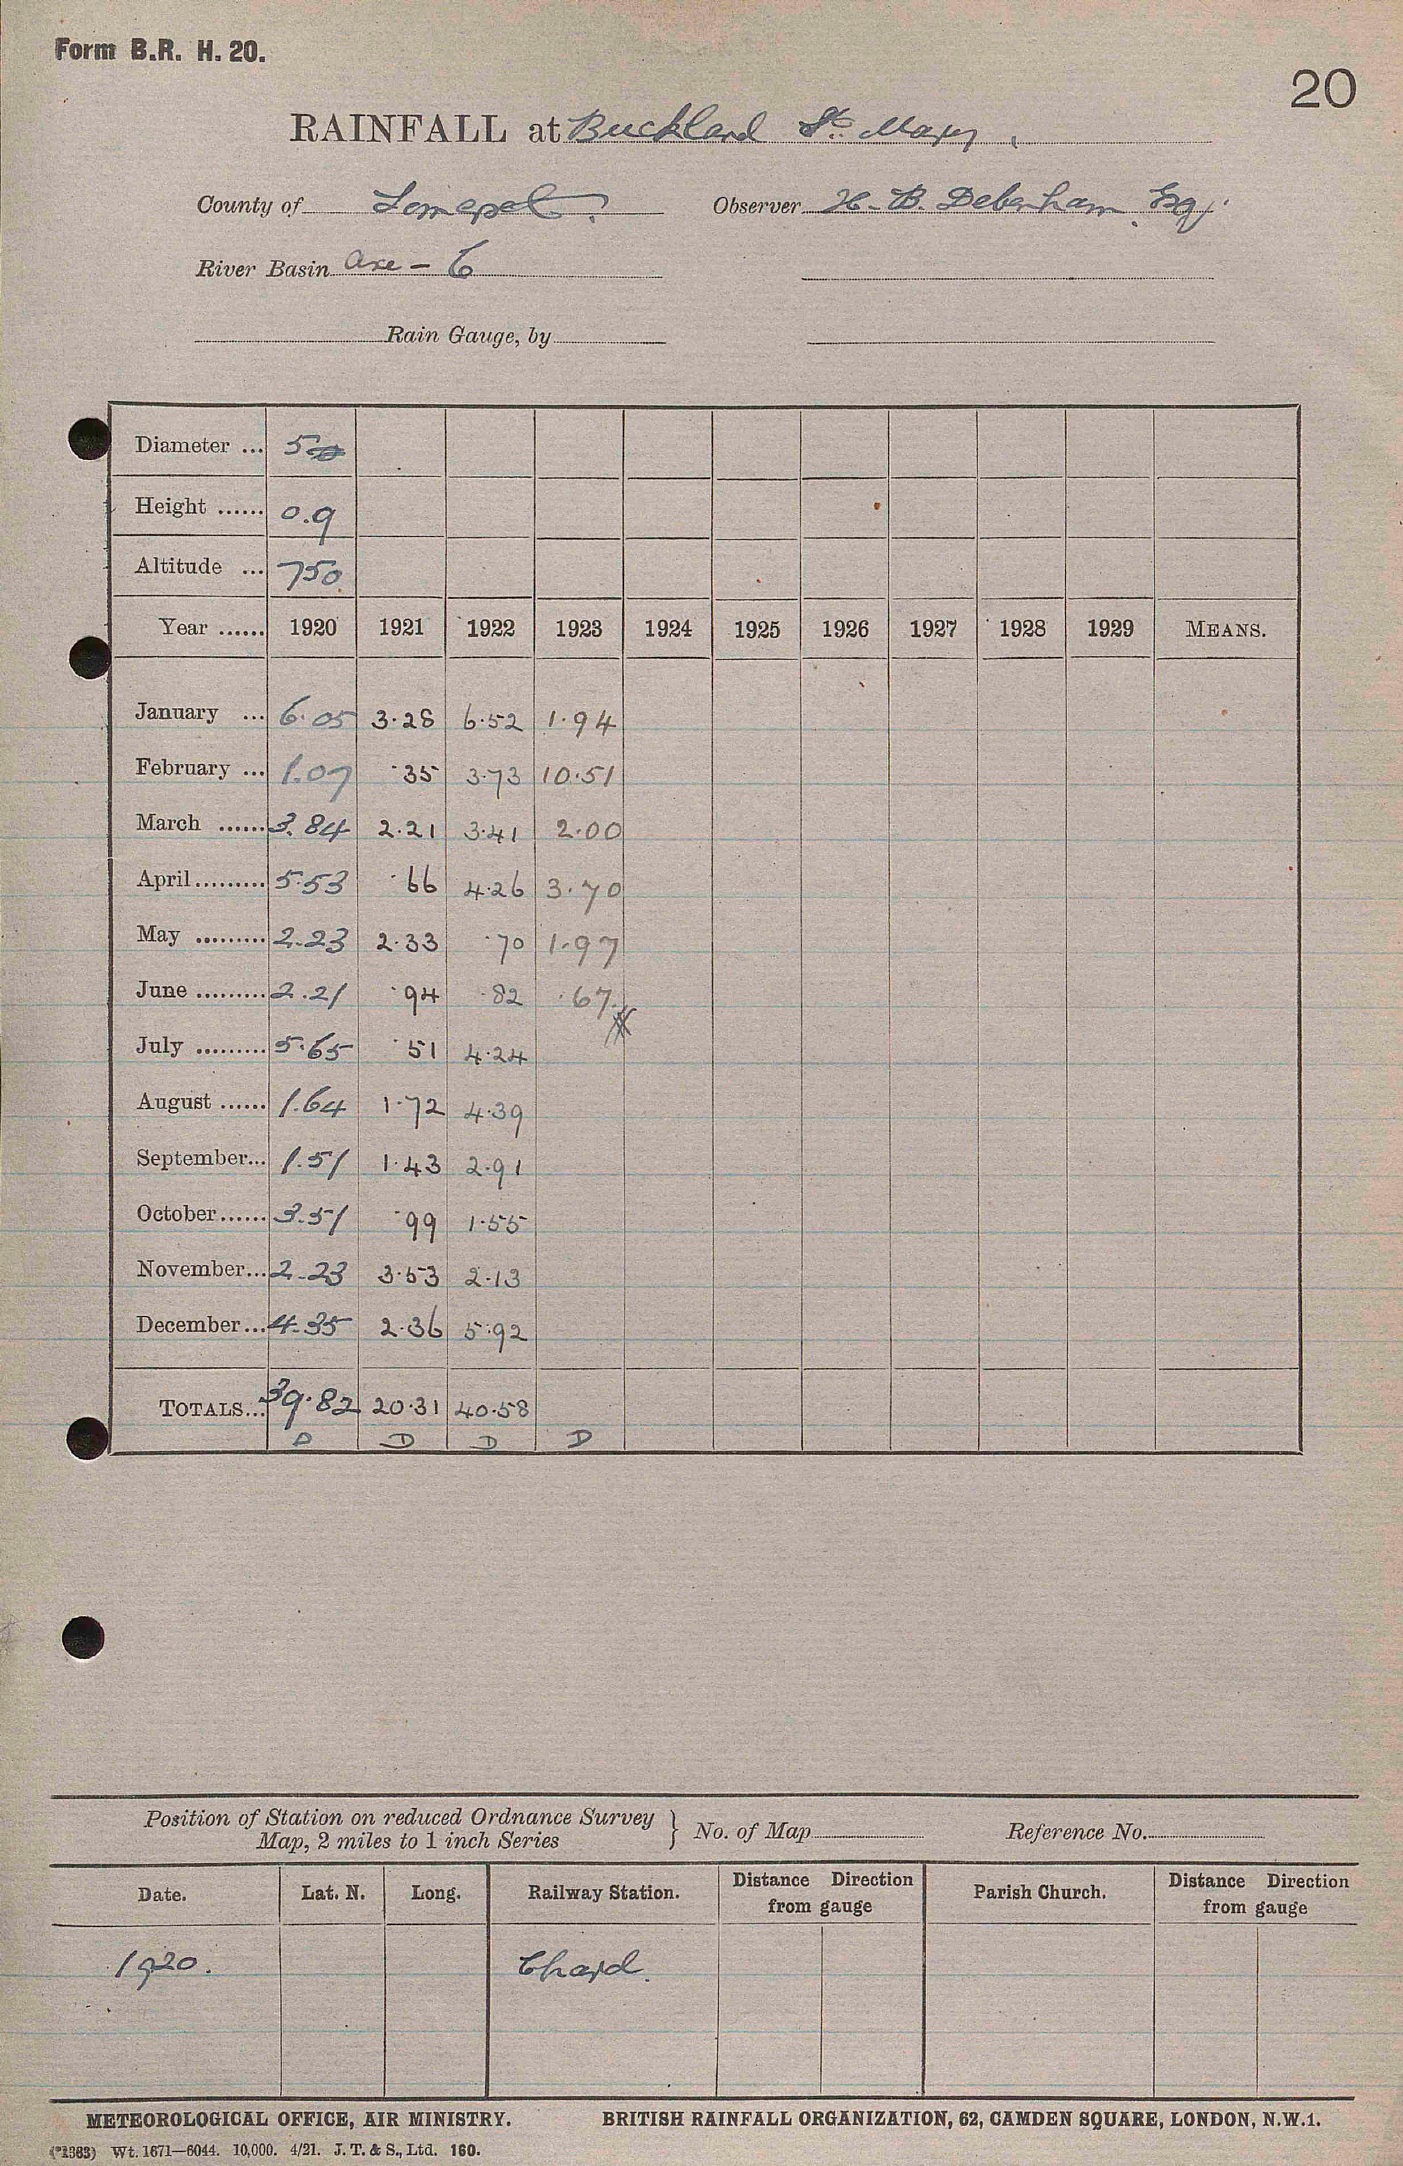 Form B.R. H. 20.
20
RAINFALL at Buckland St. Mary,
County of Somerset. Observer H. B. Debenham Esq.
River Basin Axe – 6
Rain Gauge, by
Diameter ... 5
Height ...... 0.9
Altitude ... 750
Year ...... 1920 1921 1922 1923 1924 1925 1926 1927 1928 1929 MEANS.
January ... 6.05 3.28 6.52 1.94
February ... 1.07 .35 3.73 10.51
March ...... 3.84 2.21 3.41 2.00
April ......... 5.53 .66 4.26 3.70
May ......... 2.23 2.33 .70 1.97
June ......... 2.21 .94 .82 .67
July ......... 5.65 .51 4.24
August ...... 1.64 1.72 4.39
September... 1.51 1.43 2.91
October...... 3.51 .99 1.55
November... 2.23 3.53 2.13
December... 4.35 2.36 5.92
TOTALS... 39.82 20.31 40.58
D D D D
Position of Station on reduced Ordnance Survey
Map, 2 miles to 1 inch Series } No. of Map Reference No.
Date. Lat. N. Long. Railway Station. Distance Direction from gauge Parish Church. Distance Direction from gauge
1920. Chard.
METEOROLOGICAL OFFICE, AIR MINISTRY. BRITISH RAINFALL ORGANIZATION, 62, CAMDEN SQUARE, LONDON, N.W.1.
(*1383) Wt. 1671—6044. 10,000. 4/21. J. T. & S., Ltd. 160.